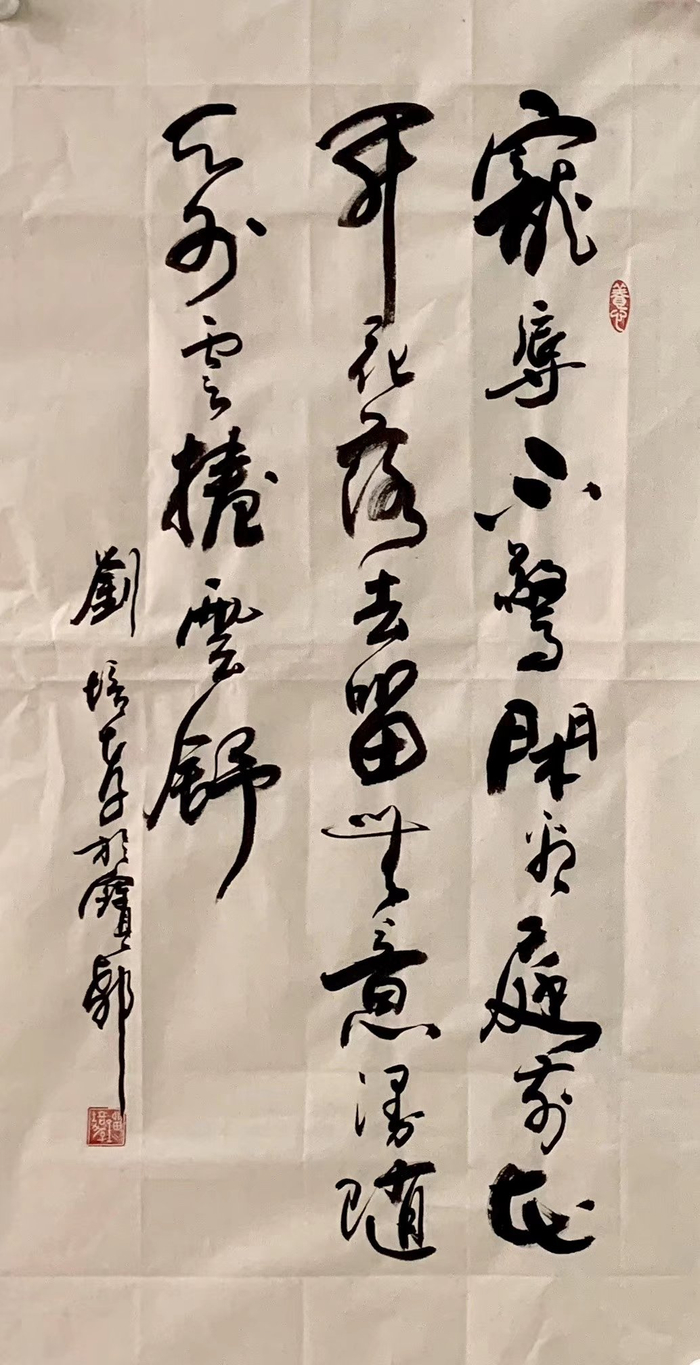 養心
寵辱不驚閑看庭前花
開花落去留無意漫隨
天外雲捲雲舒
劉培於寶